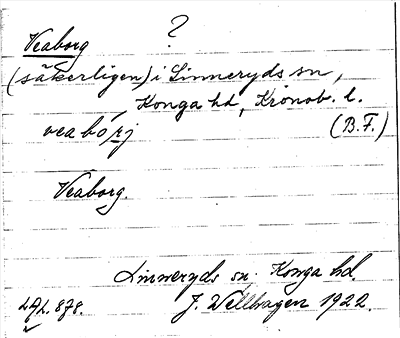 Veaborg ?
(säkerligen) i Linneryds sn,
Konga hd, Kronob. l.
veabórj (B.F.)
Veaborg.
Linneryds sn. Konga hd.
J. Wellhagen 1922.